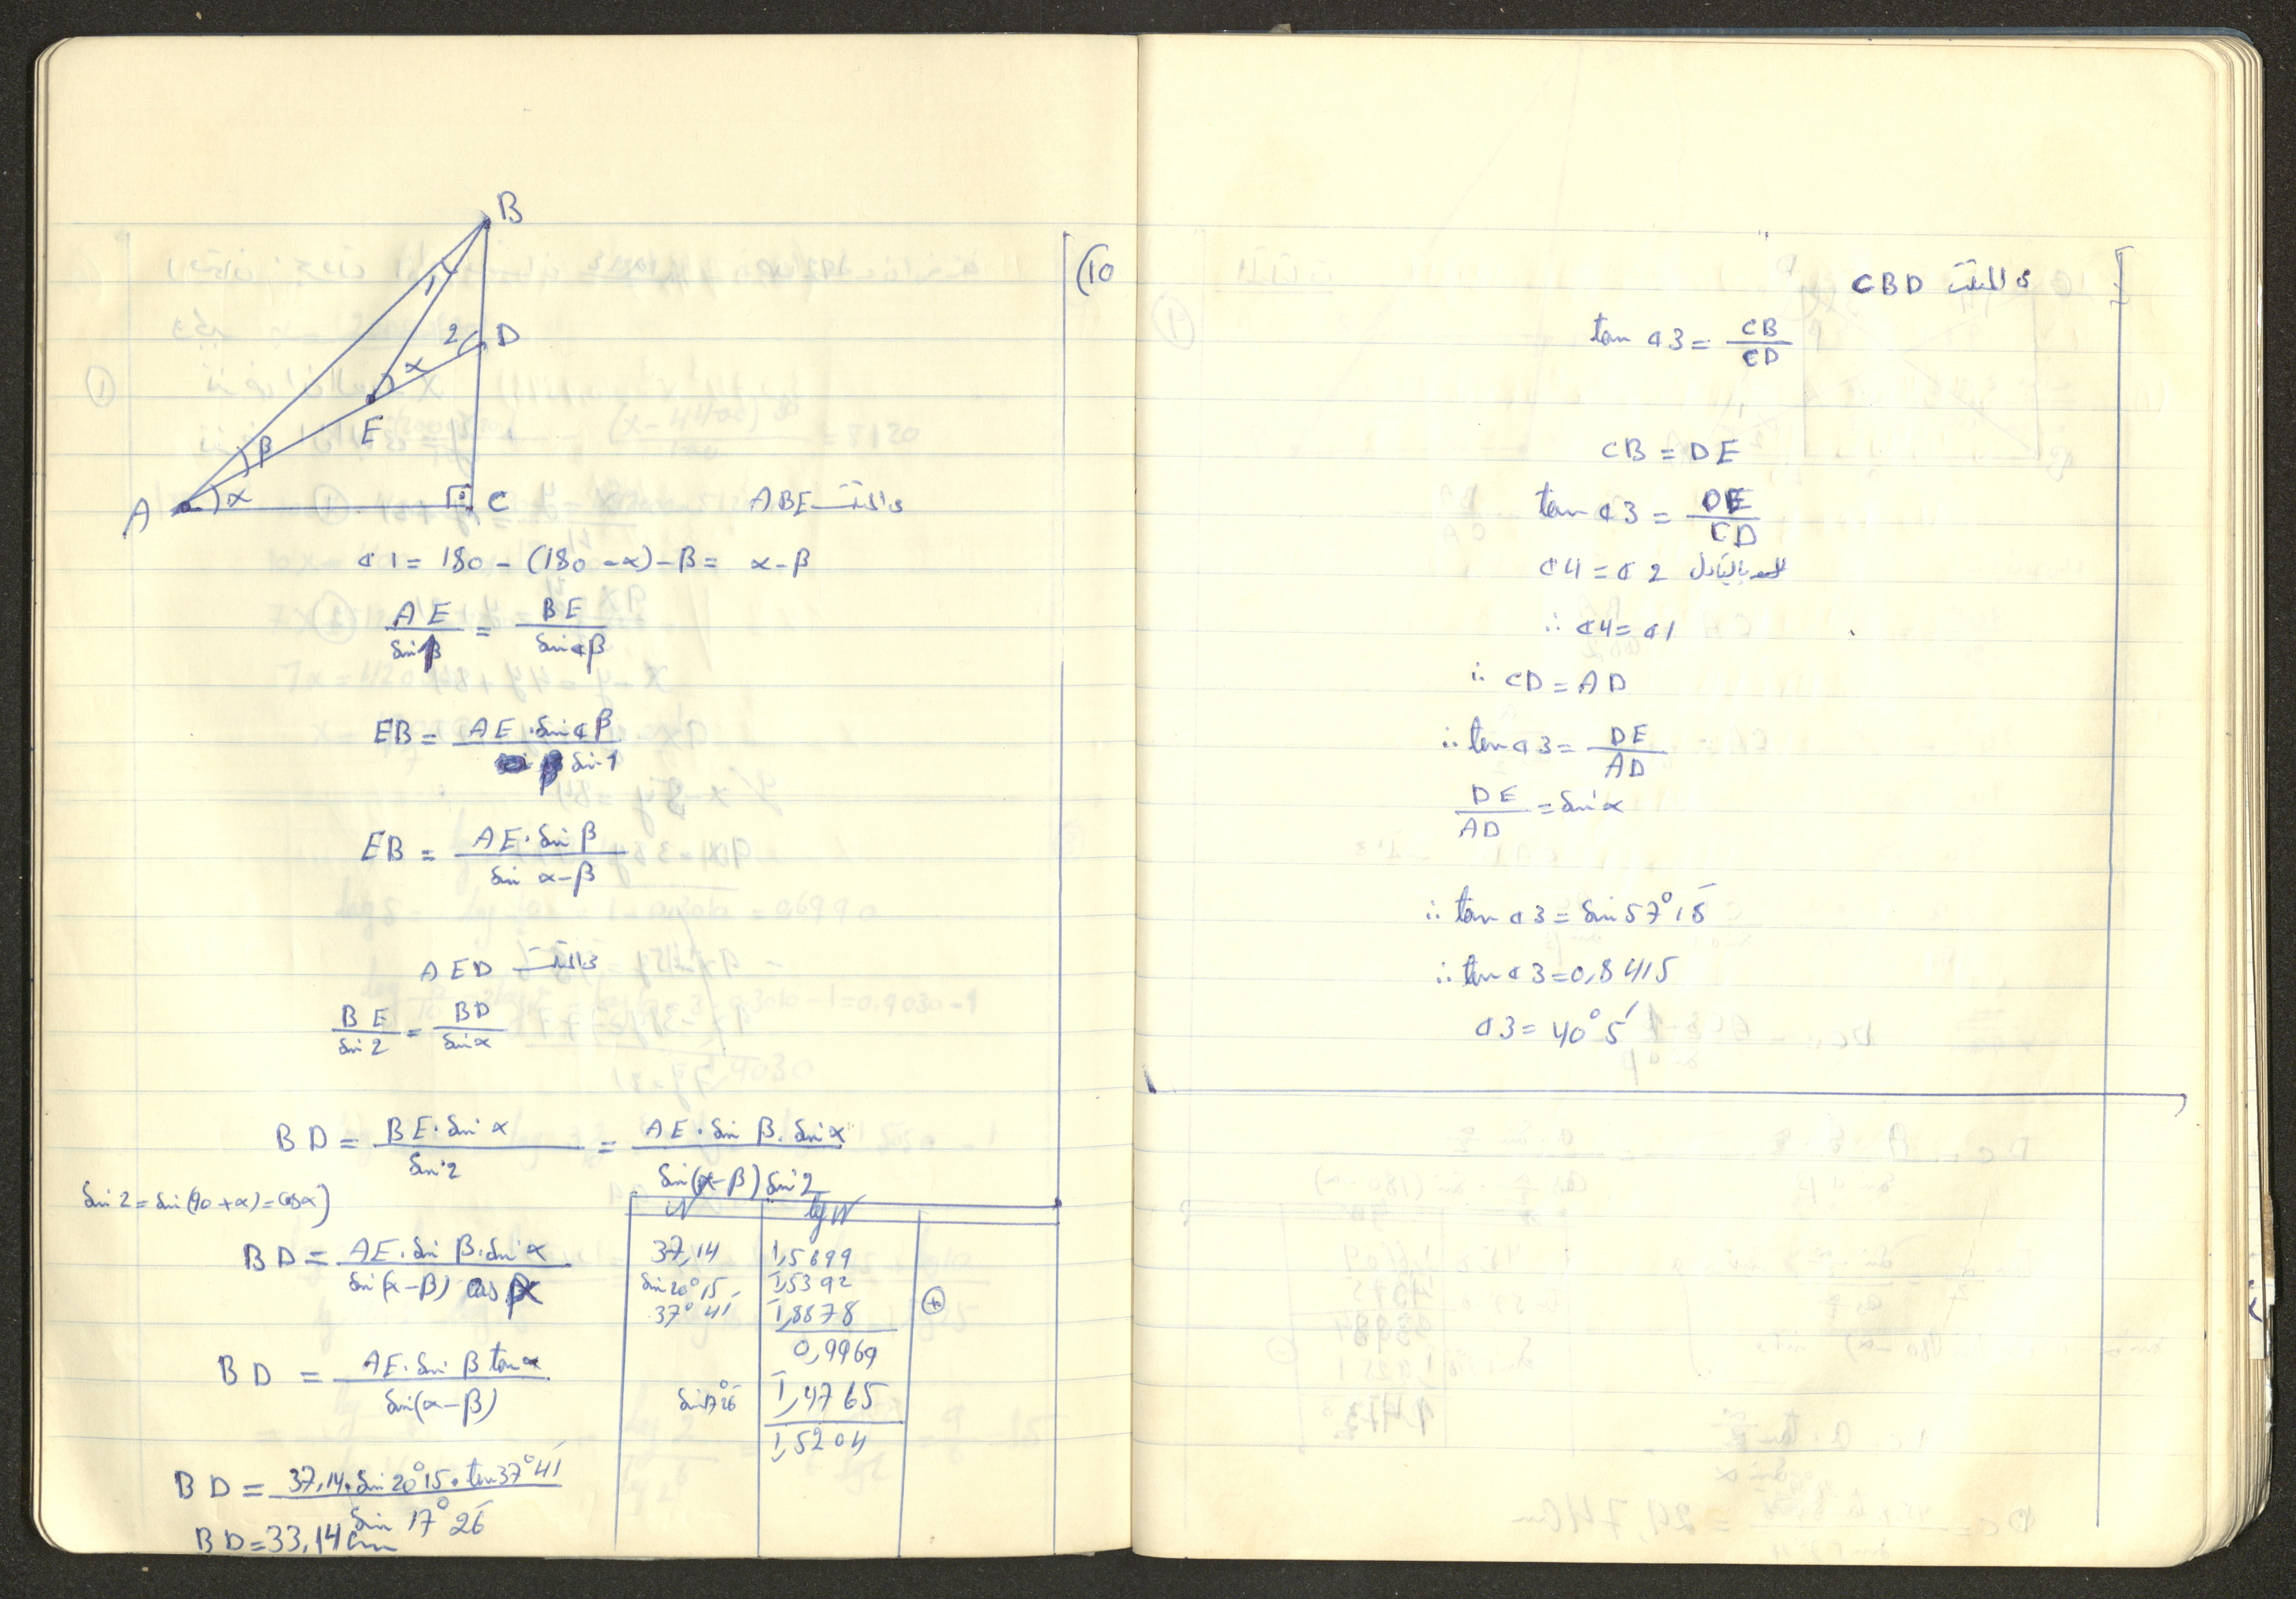 (10
B
1
2
D
α
E
β
A
α
C
ABE
∢1 = 180 - (180 - α) - β = α - β
AE / sin β = BE / sin ∢β
EB = AE · sin ∢β / sin 1
EB = AE · sin β / sin α - β
AED
BE / sin 2 = BD / sin α
BD = BE · sin α / sin 2 = AE · sin β · sin α / sin(α - β) sin 2
sin 2 = sin(90 + α) = cos α)
BD = AE · sin β · sin α / sin(α - β) cos α
BD = AE · sin β tan α / sin(α - β)
BD = 37,14 · sin 20°15 · tan 37°41' / sin 17°26'
BD = 33,14 cm
N lg N
37,14 1,5699
sin 20°15 1̄,5392
37° 41' 1̄,8878
+
0,9969
sin 17°26' 1̄,4765
1,5204
في المثلث CBD
tan ∢3 = CB / CD
CB = DE
tan ∢3 = DE / CD
∢4 = ∢2 بالتبادل
∴ ∢4 = ∢1
∴ CD = AD
∴ tan ∢3 = DE / AD
DE / AD = sin α
∴ tan ∢3 = sin 57°15'
∴ tan ∢3 = 0,8415
∢3 = 40° 5'